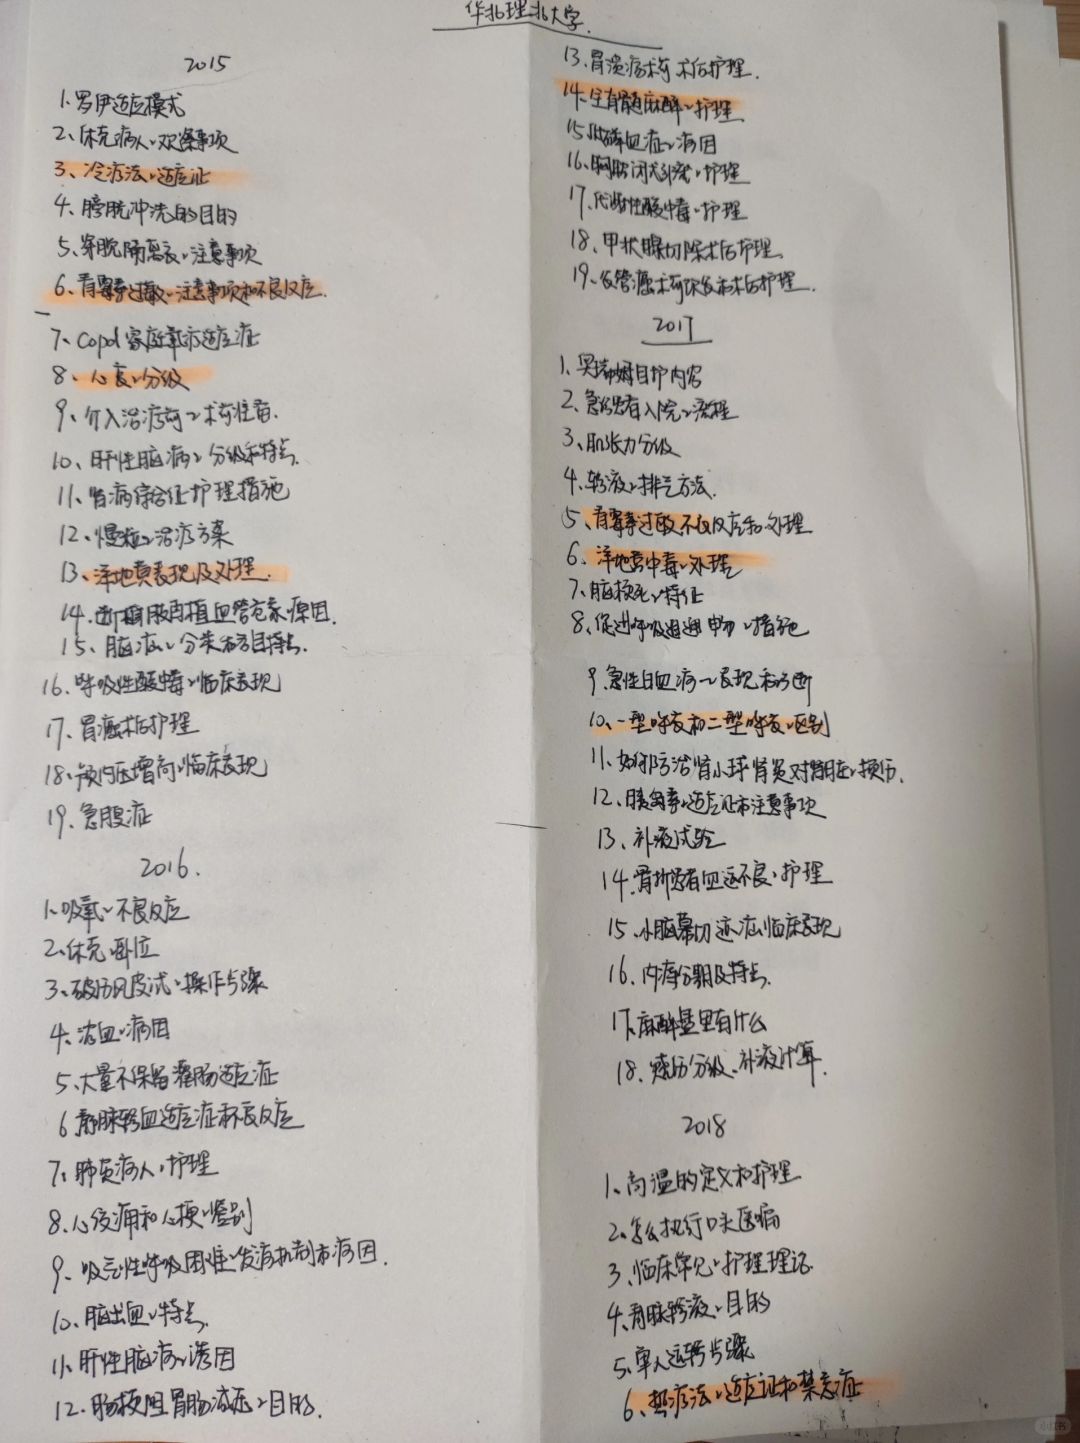 华北理工大学
2015
1、罗伊适应模式
2、休克病人、观察事项
3、冷疗法、适应证
4、膀胱冲洗的目的
5、穿脱隔离衣、注意事项
6、青霉素过敏、注意事项和不良反应.
7、copd家庭氧疗适应症
8、心衰、分级
9、介入治疗前、术前准备.
10、肝性脑病、分级和特点.
11、肾病综合征护理措施
12、慢粒、治疗方案
13、洋地黄表现及处理.
14、断肢再植血管危象原因.
15、脑疝、分类和各自特点.
16、呼吸性酸中毒、临床表现
17、胃癌术后护理
18、颅内压增高、临床表现
19、急腹症
2016.
1、吸氧、不良反应
2、休克、卧位
3、破伤风皮试、操作步骤
4、溶血、病因
5、大量不保留灌肠适应症
6、静脉输血适应症和不良反应
7、肺炎病人、护理
8、心绞痛和心梗、鉴别
9、吸气性呼吸困难、发病机制和病因.
10、脑出血、特点.
11、肝性脑病、诱因
12、肠梗阻胃肠减压、目的.
13、胃溃疡术前术后护理.
14、全脊髓麻醉、护理
15、脓血症、病因
16、胸腔闭式引流、护理
17、代谢性酸中毒、护理
18、甲状腺切除术后护理.
19、食管癌术前术后护理.
2017
1、奥瑞姆自护内容
2、急诊患者入院、流程
3、肌张力分级
4、输液、排气方法.
5、青霉素过敏不良反应和处理
6、洋地黄中毒、处理
7、脑梗死、特征
8、促进呼吸道通畅、措施
9、急性白血病、表现和诊断
10、一型呼衰和二型呼衰、区别
11、如何防治肾小球肾炎对肾脏、损伤.
12、胰岛素、适应证和注意事项
13、补液试验
14、骨折患者血运不良、护理
15、小脑幕切迹疝、临床表现
16、内痔分期及特点.
17、麻醉盘里有什么
18、烧伤分级、补液计算.
2018
1、高温的定义和护理
2、怎么执行口头医嘱
3、临床常见、护理理论
4、静脉输液、目的
5、单人运转步骤
6、热疗法、适应证和禁忌症
小红书